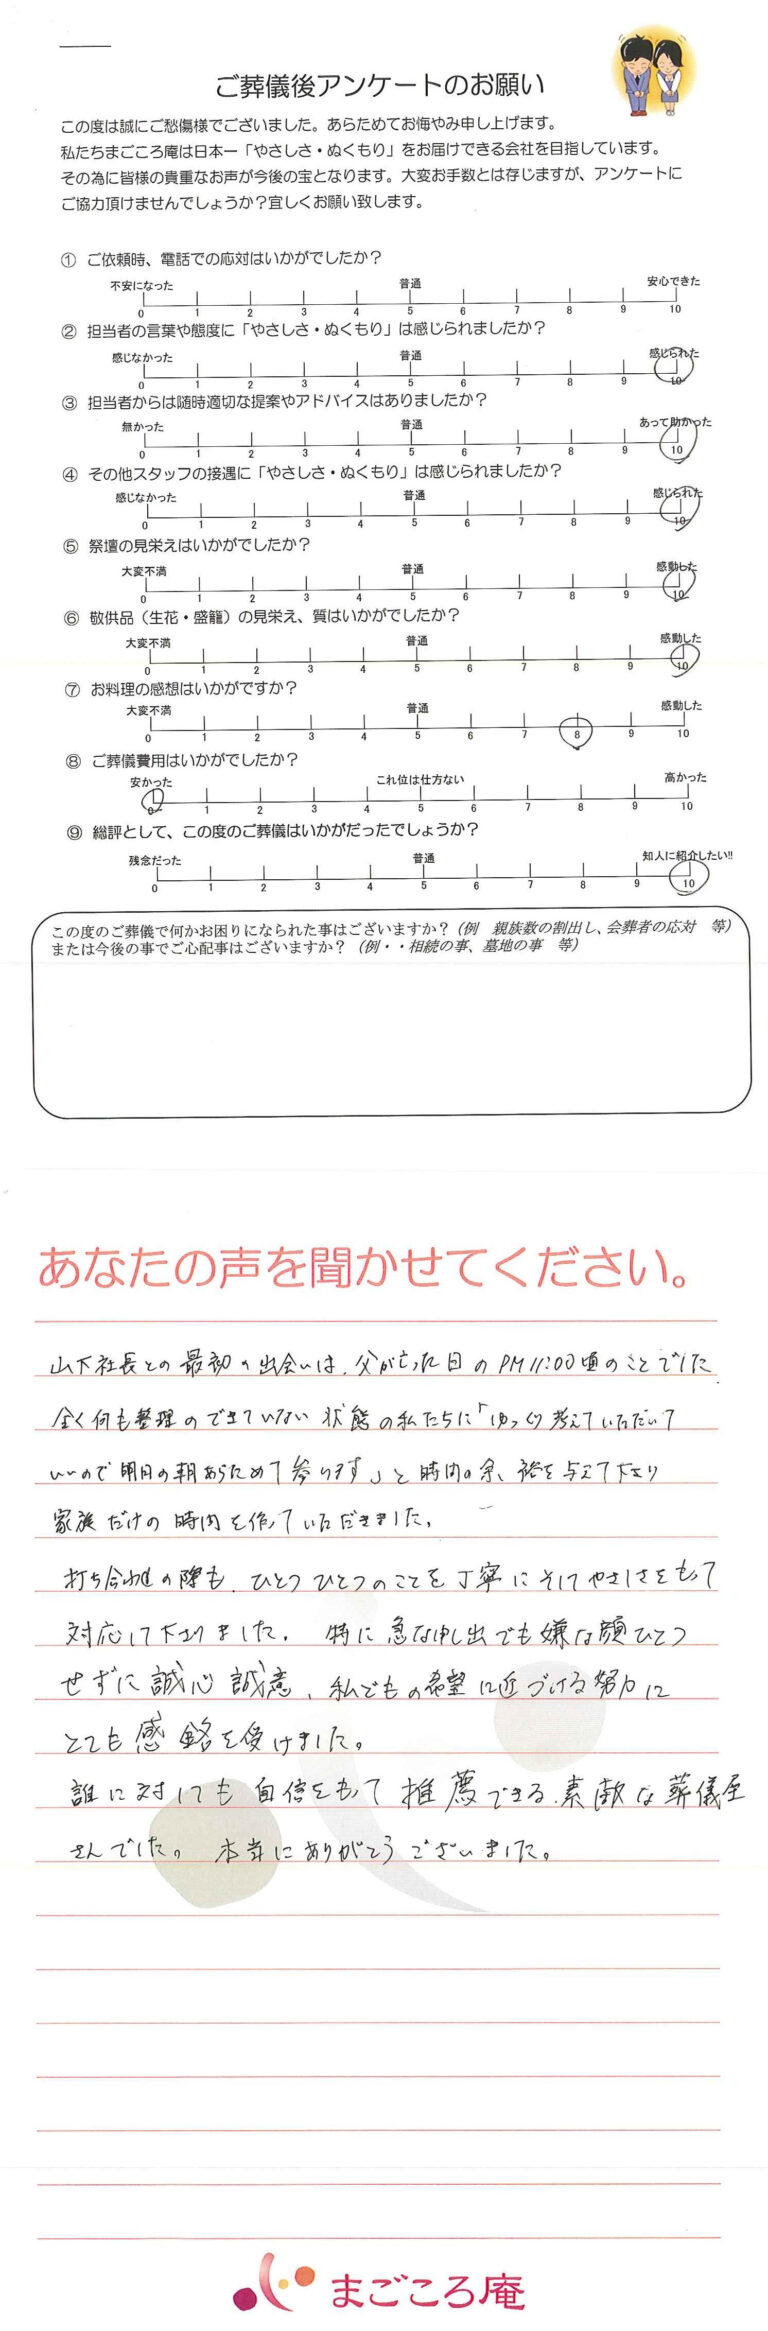 ご葬儀後アンケートのお願い
この度は誠にご愁傷様でございました。あらためてお悔やみ申し上げます。
私たちまごころ庵は日本一「やさしさ・ぬくもり」をお届けできる会社を目指しています。
その為に皆様の貴重なお声が今後の宝となります。大変お手数とは存じますが、アンケートに
ご協力頂けませんでしょうか？宜しくお願い致します。
① ご依頼時、電話での応対はいかがでしたか？
不安になった 普通 安心できた
0 1 2 3 4 5 6 7 8 9 10
② 担当者の言葉や態度に「やさしさ・ぬくもり」は感じられましたか？
感じなかった 普通 感じられた
0 1 2 3 4 5 6 7 8 9 10
③ 担当者からは随時適切な提案やアドバイスはありましたか？
無かった 普通 あって助かった
0 1 2 3 4 5 6 7 8 9 10
④ その他スタッフの接遇に「やさしさ・ぬくもり」は感じられましたか？
感じなかった 普通 感じられた
0 1 2 3 4 5 6 7 8 9 10
⑤ 祭壇の見栄えはいかがでしたか？
大変不満 普通 感動した
0 1 2 3 4 5 6 7 8 9 10
⑥ 敬供品（生花・盛籠）の見栄え、質はいかがでしたか？
大変不満 普通 感動した
0 1 2 3 4 5 6 7 8 9 10
⑦ お料理の感想はいかがですか？
大変不満 普通 感動した
0 1 2 3 4 5 6 7 8 9 10
⑧ ご葬儀費用はいかがでしたか？
安かった これ位は仕方ない 高かった
0 1 2 3 4 5 6 7 8 9 10
⑨ 総評として、この度のご葬儀はいかがだったでしょうか？
残念だった 普通 知人に紹介したい!!
0 1 2 3 4 5 6 7 8 9 10
この度のご葬儀で何かお困りになられた事はございますか？（例　親族数の割出し、会葬者の応対　等）
または今後の事でご心配事はございますか？（例・・相続の事、墓地の事　等）
あなたの声を聞かせてください。
山下社長との最初の出会いは、父が亡った日のPM11:00頃のことでした
全く何も整理のできていない状態の私たちに「ゆっくり考えていただいて
いいので明日の朝あらためて参ります」と時間の余裕を与えて下さり
家族だけの時間を作っていただきました。
打ち合わせの際も、ひとつひとつのことを丁寧にそしてやさしさをもって
対応して下さりました。特に急な申し出でも嫌な顔ひとつ
せずに誠心誠意、私どもの希望に近づける努力に
とても感銘を受けました。
誰に対しても自信をもって推薦できる、素敵な葬儀屋
さんでした。本当にありがとうございました。
まごころ庵